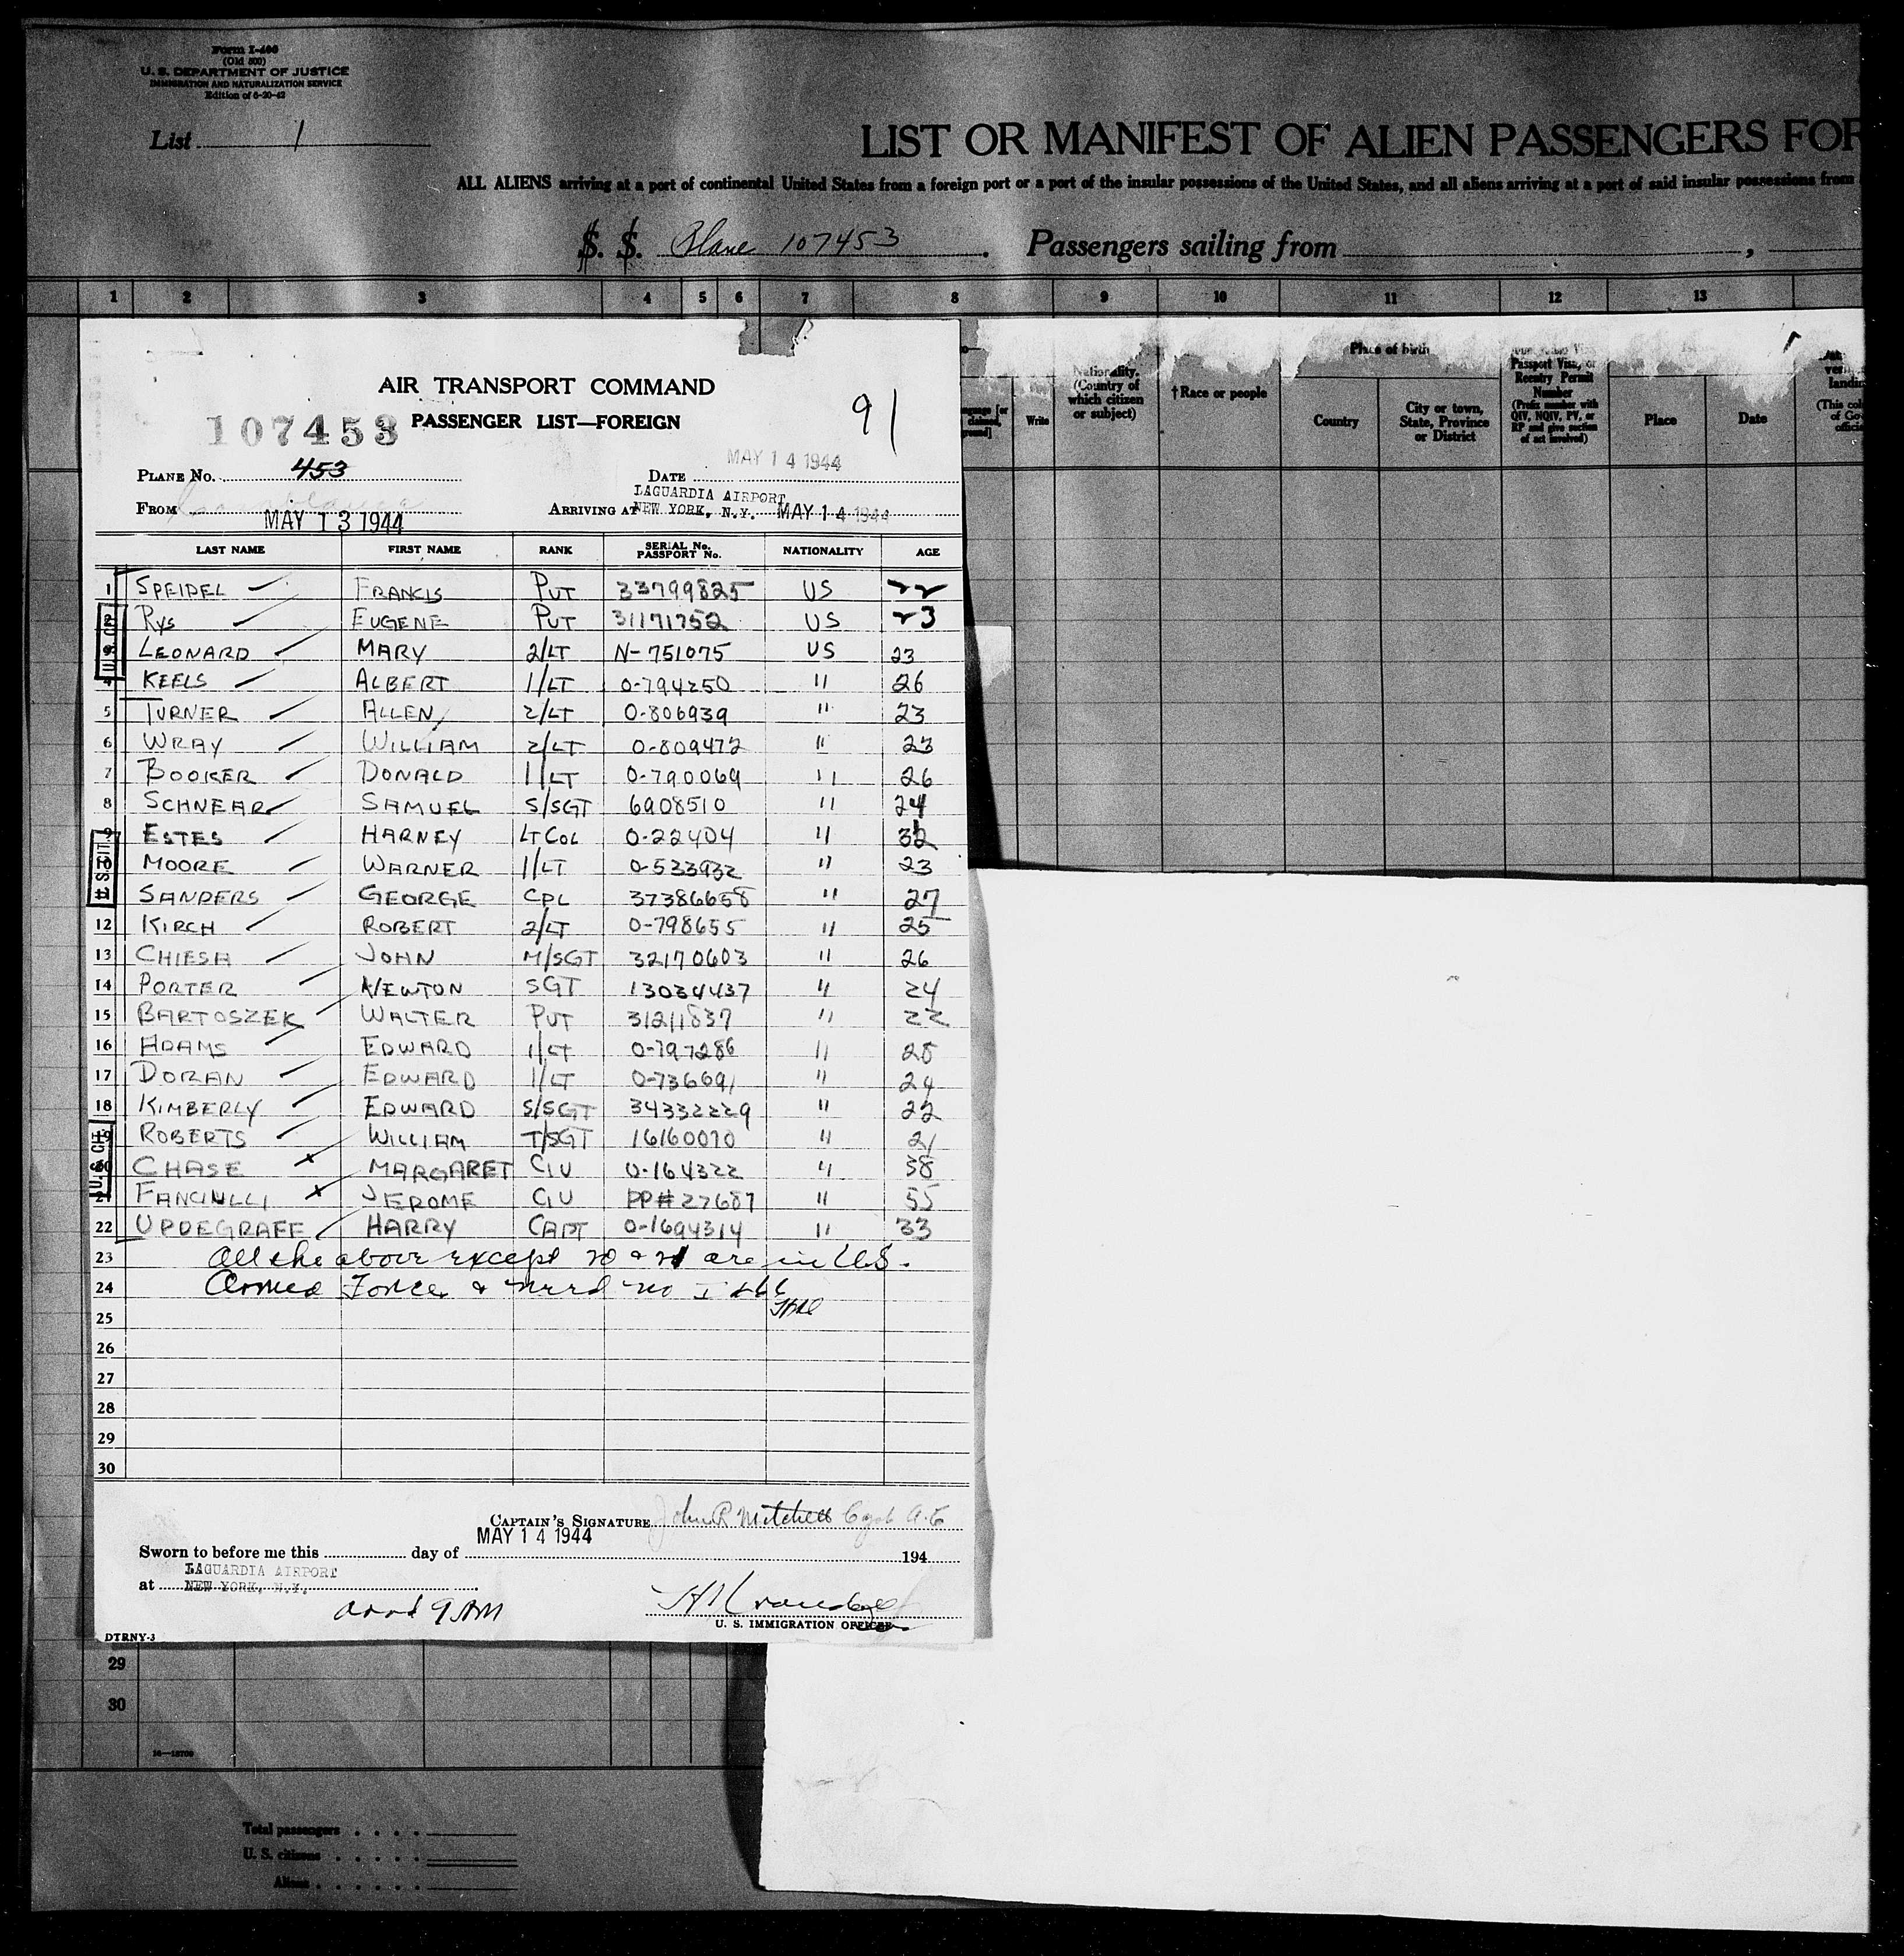 Form I-400
(Old 500)
U. S. DEPARTMENT OF JUSTICE
IMMIGRATION AND NATURALIZATION SERVICE
Edition of 6-20-42
List 1
LIST OR MANIFEST OF ALIEN PASSENGERS FOR
ALL ALIENS arriving at a port of continental United States from a foreign port or a port of the insular possessions of the United States, and all aliens arriving at a port of said insular possessions from
S. S. Plane 107453. Passengers sailing from ,
1 2 3 4 5 6 7 8 9 10 11 12 13
Nationality. (Country of which citizen or subject)
†Race or people
Place of birth
Country
City or town, State, Province or District
Passport Visa, or Reentry Permit Number
(Prefix number with QIV, NQIV, PV, or RP and give section of act involved)
Place
Date
Write
AIR TRANSPORT COMMAND
107453 PASSENGER LIST—FOREIGN
91
PLANE NO. 453 DATE MAY 14 1944
FROM MAY 13 1944 ARRIVING AT LAGUARDIA AIRPORT NEW YORK, N.Y. MAY 14 1944
LAST NAME FIRST NAME RANK SERIAL No. PASSPORT No. NATIONALITY AGE
1 SPEIDEL FRANCIS PVT 33799825 US 22
2 RYS EUGENE PVT 31171752 US 23
3 LEONARD MARY 2/LT N-751075 US 23
4 KEELS ALBERT 1/LT 0-794250 " 26
5 TURNER ALLEN 2/LT 0-806939 " 23
6 WRAY WILLIAM 2/LT 0-809472 " 23
7 BOOKER DONALD 1/LT 0-790069 " 26
8 SCHNEAR SAMUEL S/SGT 6908510 " 24
9 ESTES HARNEY LT COL 0-22404 "
10 MOORE WARNER 1/LT 0-533932 " 23
11 SANDERS GEORGE CPL 37386658 " 27
12 KIRCH ROBERT 2/LT 0-798655 " 25
13 CHIESA JOHN M/SGT 32170603 " 26
14 PORTER NEWTON SGT 13034437 " 24
15 BARTOSZEK WALTER PVT 31211837 " 22
16 ADAMS EDWARD 1/LT 0-797286 " 28
17 DORAN EDWARD 1/LT 0-736691 " 24
18 KIMBERLY EDWARD S/SGT 34332229 " 22
19 ROBERTS WILLIAM T/SGT 16160070 " 21
20 CHASE MARGARET CIV 0-164322 " 38
21 FANCIULLI JEROME CIV PP#27687 " 55
22 UPDEGRAFF HARRY CAPT 0-1694314 " 33
23 All the above except 20 & 21 are in U.S.
24 Armed Forces & need no I 466
25
26
27
28
29
30
CAPTAIN'S SIGNATURE John R Mitchell
MAY 14 1944
Sworn to before me this day of 194
LAGUARDIA AIRPORT
at NEW YORK, N.Y.
arrd 9 AM
U. S. IMMIGRATION OFFICER
DTRNY-3
29
30
16—13700
Total passengers
U. S. citizens
Aliens